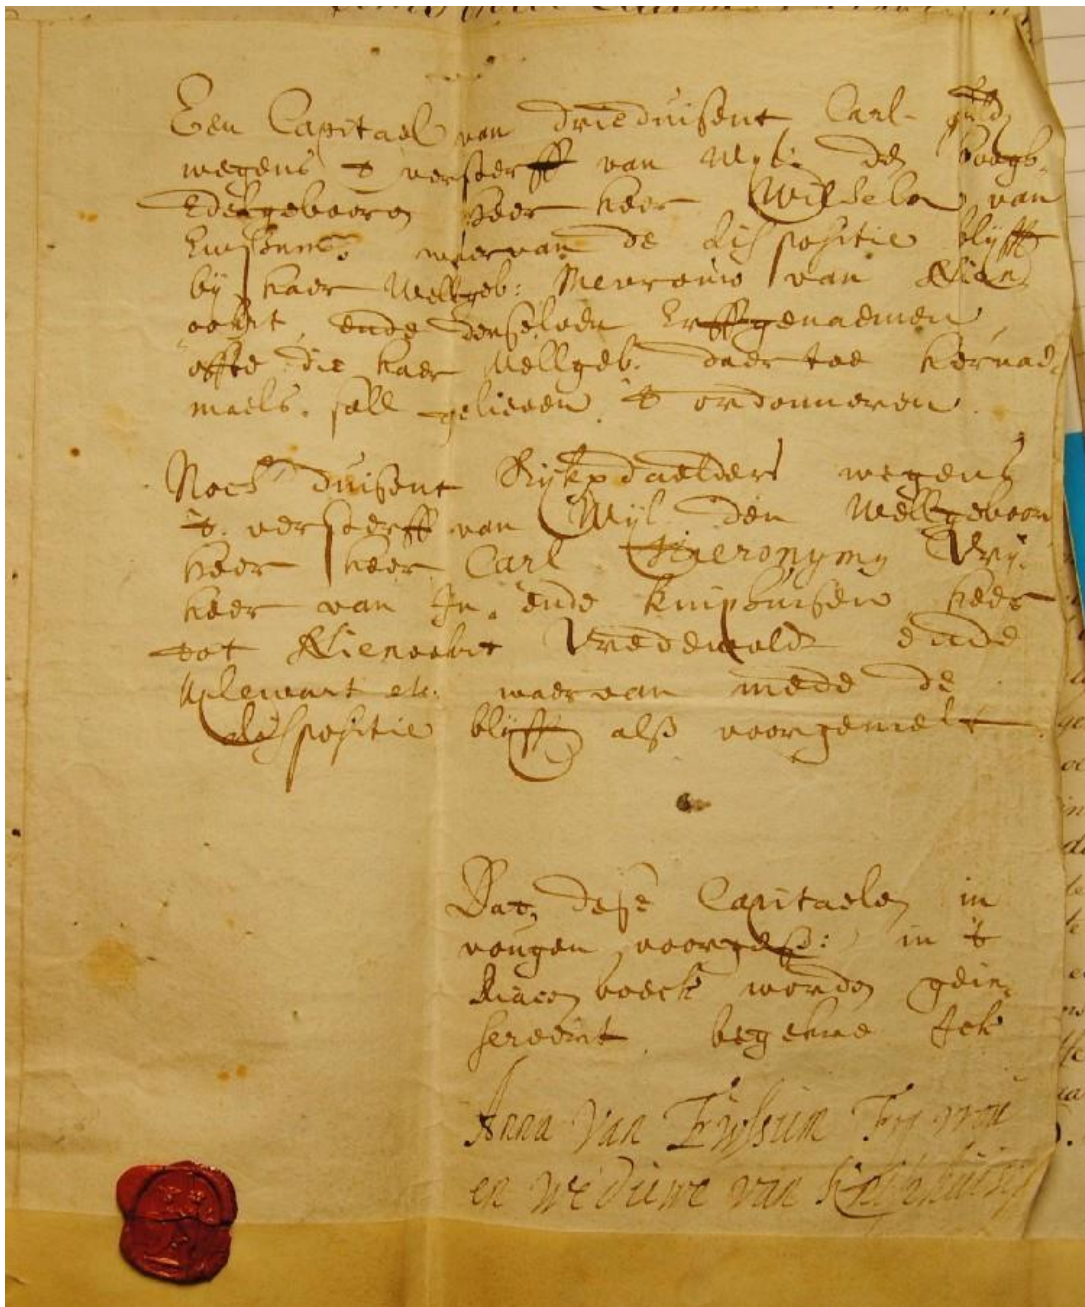 Een Capitael van drieduisent Carl- gld
wegens 't versterff van Wyl: de hoogh-
Edelgebooren heer heer Wilhelm van
Ewssum, waervan de dispositie blyfft
bij haer Wellgeb: Mevrouw van Nien
oohrt, ende derselver Erffgenaemen,
offte die haer Wellgeb. daer toe hernae-
maels. sall gelieven 't ordonneren.
Noch duisent Rijkxdaelders wegens
't versterff van Wyl den Wellgebooren
heer heer Carl Hieronymy Vrij-
heer van In. ende Kniphuisen heer
tot Nienoohrt Vredewold ende
Ulewart etc. waervan mede de
dispositie blijfft alss voorgemelt.
Dat dese Capitaelen in
vougen voorges: in 't
Diacon boeck worden gein-
sereeirt begehre Ick
Anna van Ewssum Fry vrou
en Weduwe van Kniphuisen